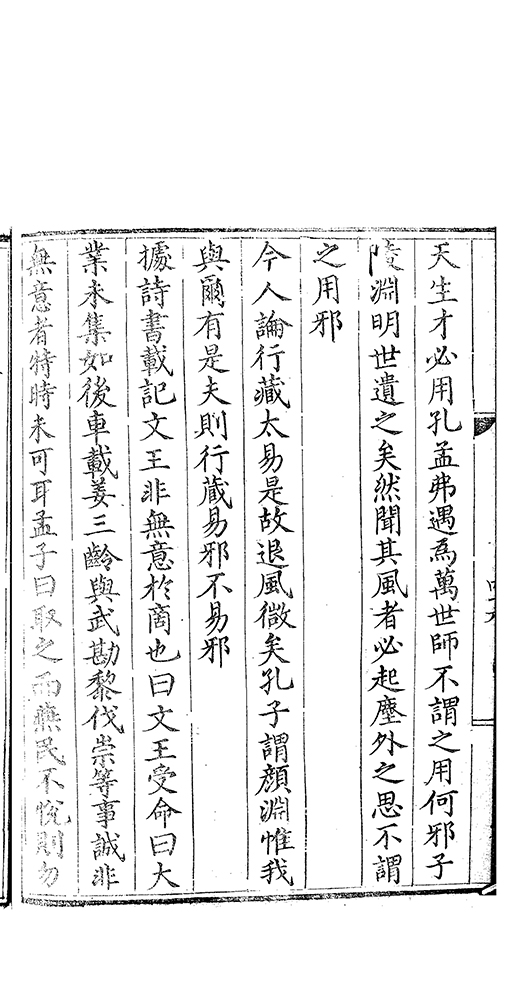 天生才必用孔孟弗遇爲萬世師不謂之用何邪子
陵淵明世遺之矣然聞其風者必起塵外之思不謂
之用邪
今人論行藏太易是故退風微矣孔子謂顏淵惟我
與爾有是夫則行藏易邪不易邪
據詩書載記文王非無意於商也曰文王受命曰大
業未集如後車載姜三齡與武勘黎伐崇等事誠非
無意者特時未可耳孟子曰取之而燕民不悅則勿